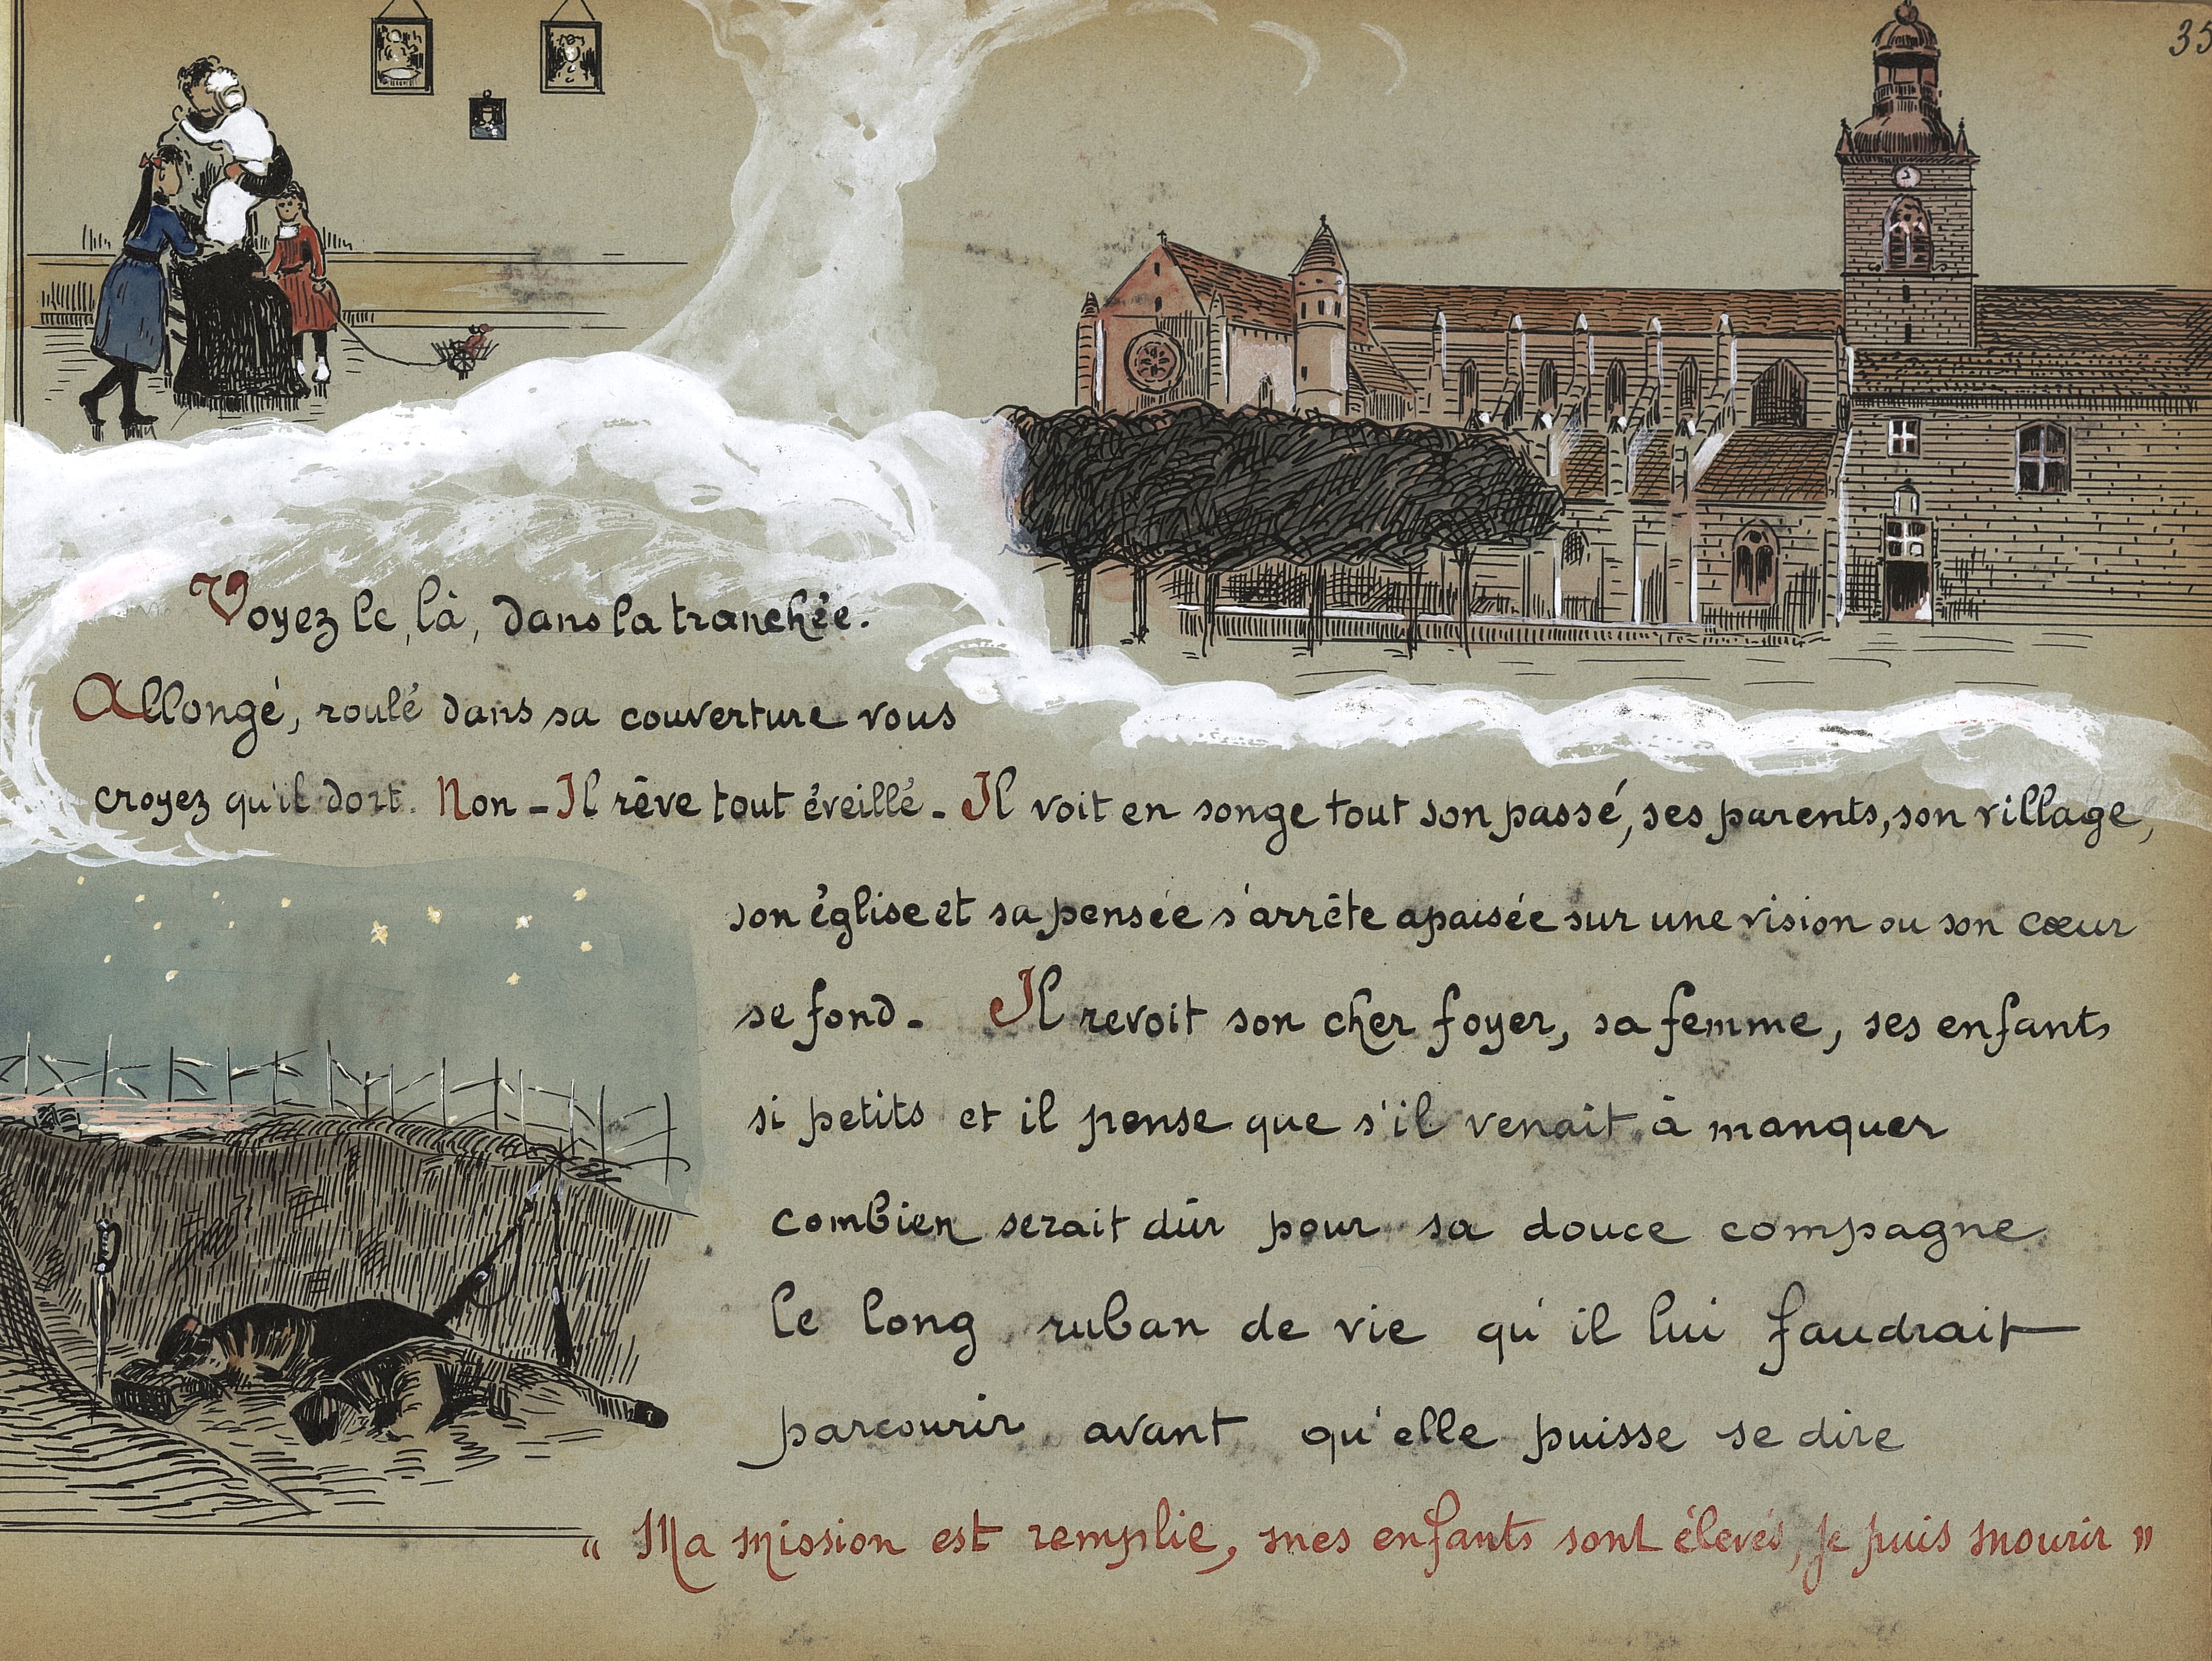 35
Voyez le, là, dans la tranchée.
Allongé, roulé dans sa couverture vous
croyez qu'il dort. Non - Il rêve tout éveillé - Il voit en songe tout son passé, ses parents, son village,
son église et sa pensée s'arrête apaisée sur une vision ou son cœur
se fond. Il revoit son cher foyer, sa femme, ses enfants
si petits et il pense que s'il venait à manquer
combien serait dûr pour sa douce compagne
le long ruban de vie qu'il lui faudrait
parcourir avant qu'elle puisse se dire
« Ma mission est remplie, mes enfants sont élevés, je puis mourir »